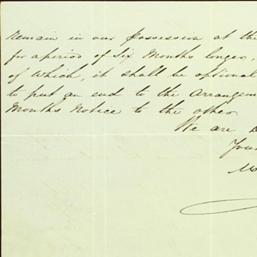 remain in our possession at the
for a period of Six Months longer,
of which, it shall be optional
to put an end to the Arrangeme
Months Notice to the other
We are D
Your